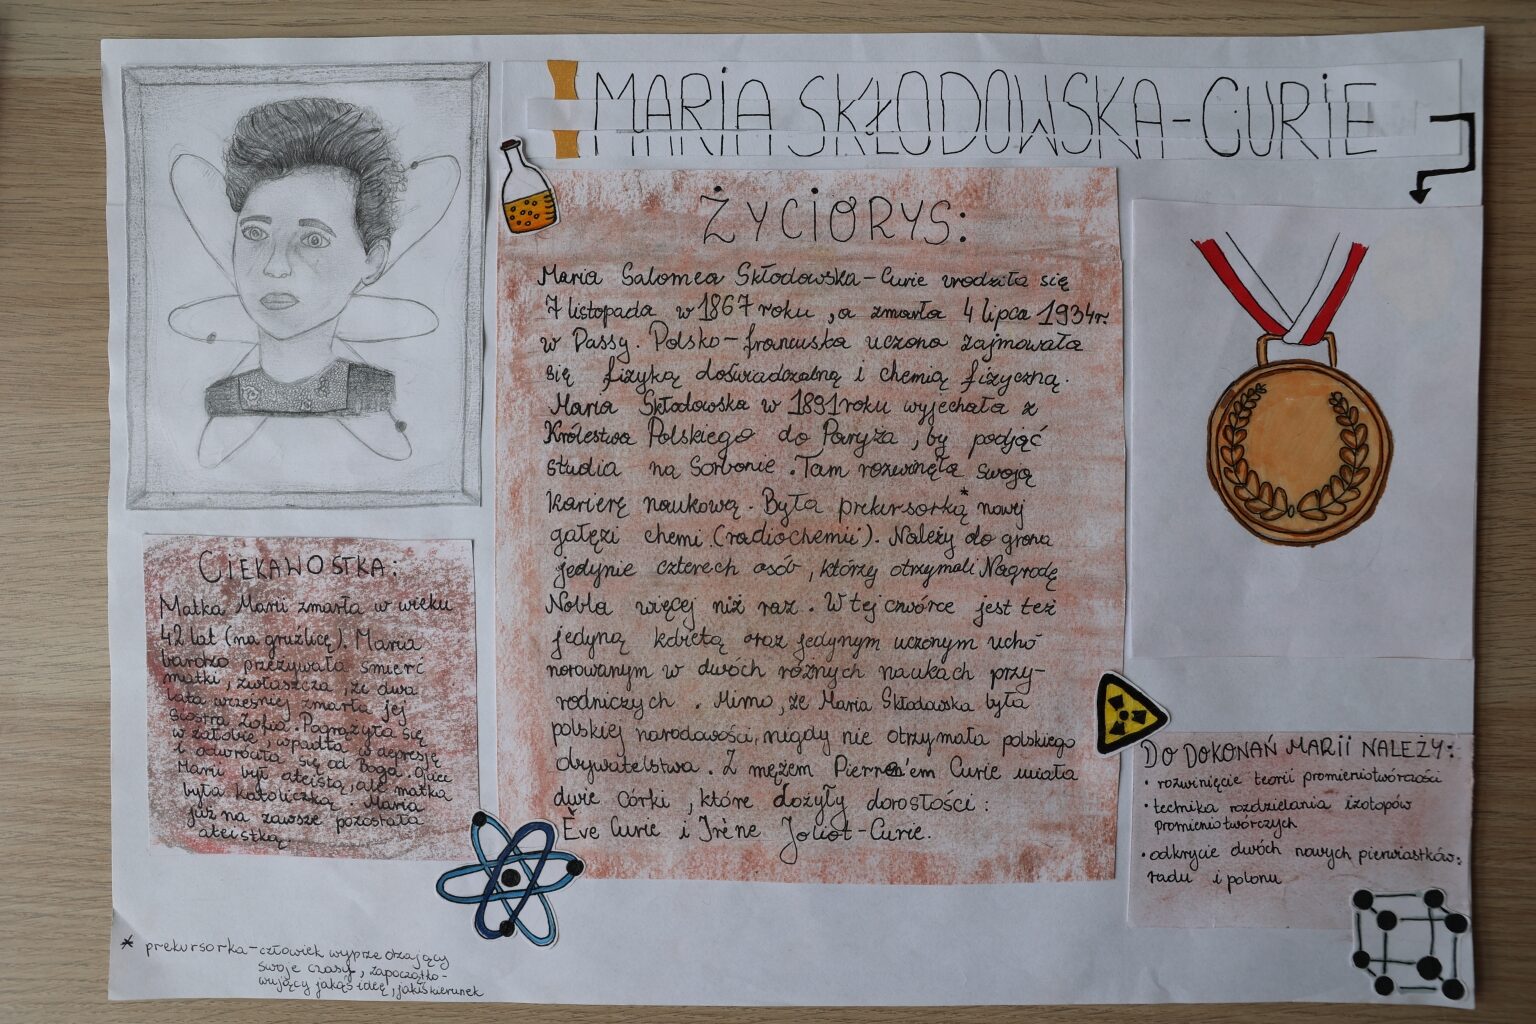 MARIA SKŁODOWSKA-CURIE
ŻYCIORYS:
Maria Salomea Skłodowska-Curie urodziła się
7 listopada w 1867 roku, a zmarła 4 lipca 1934r.
w Passy. Polsko-francuska uczona zajmowała
się fizyką doświadczalną i chemią fizyczną.
Maria Skłodowska w 1891 roku wyjechała z
Królestwa Polskiego do Paryża, by podjąć
studia na Sorbonie. Tam rozwinęła swoją
karierę naukową. Była prekursorką* nowej
gałęzi chemi (radiochemii). Należy do grona
jedynie czterech osób, którzy otrzymali Nagrodę
Nobla więcej niż raz. W tej czwórce jest też
jedyną kobietą oraz jedynym uczonym uho-
norowanym w dwóch różnych naukach przy-
rodniczych. Mimo, że Maria Skłodowska była
polskiej narodowości, nigdy nie otrzymała polskiego
obywatelstwa. Z mężem Pierre'em Curie miała
dwie córki, które dożyły dorosłości:
Ève Curie i Irène Joliot-Curie.
CIEKAWOSTKA:
Matka Marii zmarła w wieku
42 lat (na gruźlicę). Maria
bardzo przeżywała śmierć
matki, zwłaszcza, że dwa
lata wcześniej zmarła jej
siostra Zofia. Pogrążyła się
w żałobie, wpadła w depresję
i odwróciła się od Boga. Ojciec
Marii był ateistą, ale matka
była katoliczką. Maria
już na zawsze pozostała
ateistką.
DO DOKONAŃ MARII NALEŻY:
• rozwinięcie teorii promieniotwórczości
• technika rozdzielania izotopów
promieniotwórczych
• odkrycie dwóch nowych pierwiastków:
radu i polonu
* prekursorka - człowiek wyprzedzający
swoje czasy, zapoczątko-
wujący jakąś ideę, jakiś kierunek